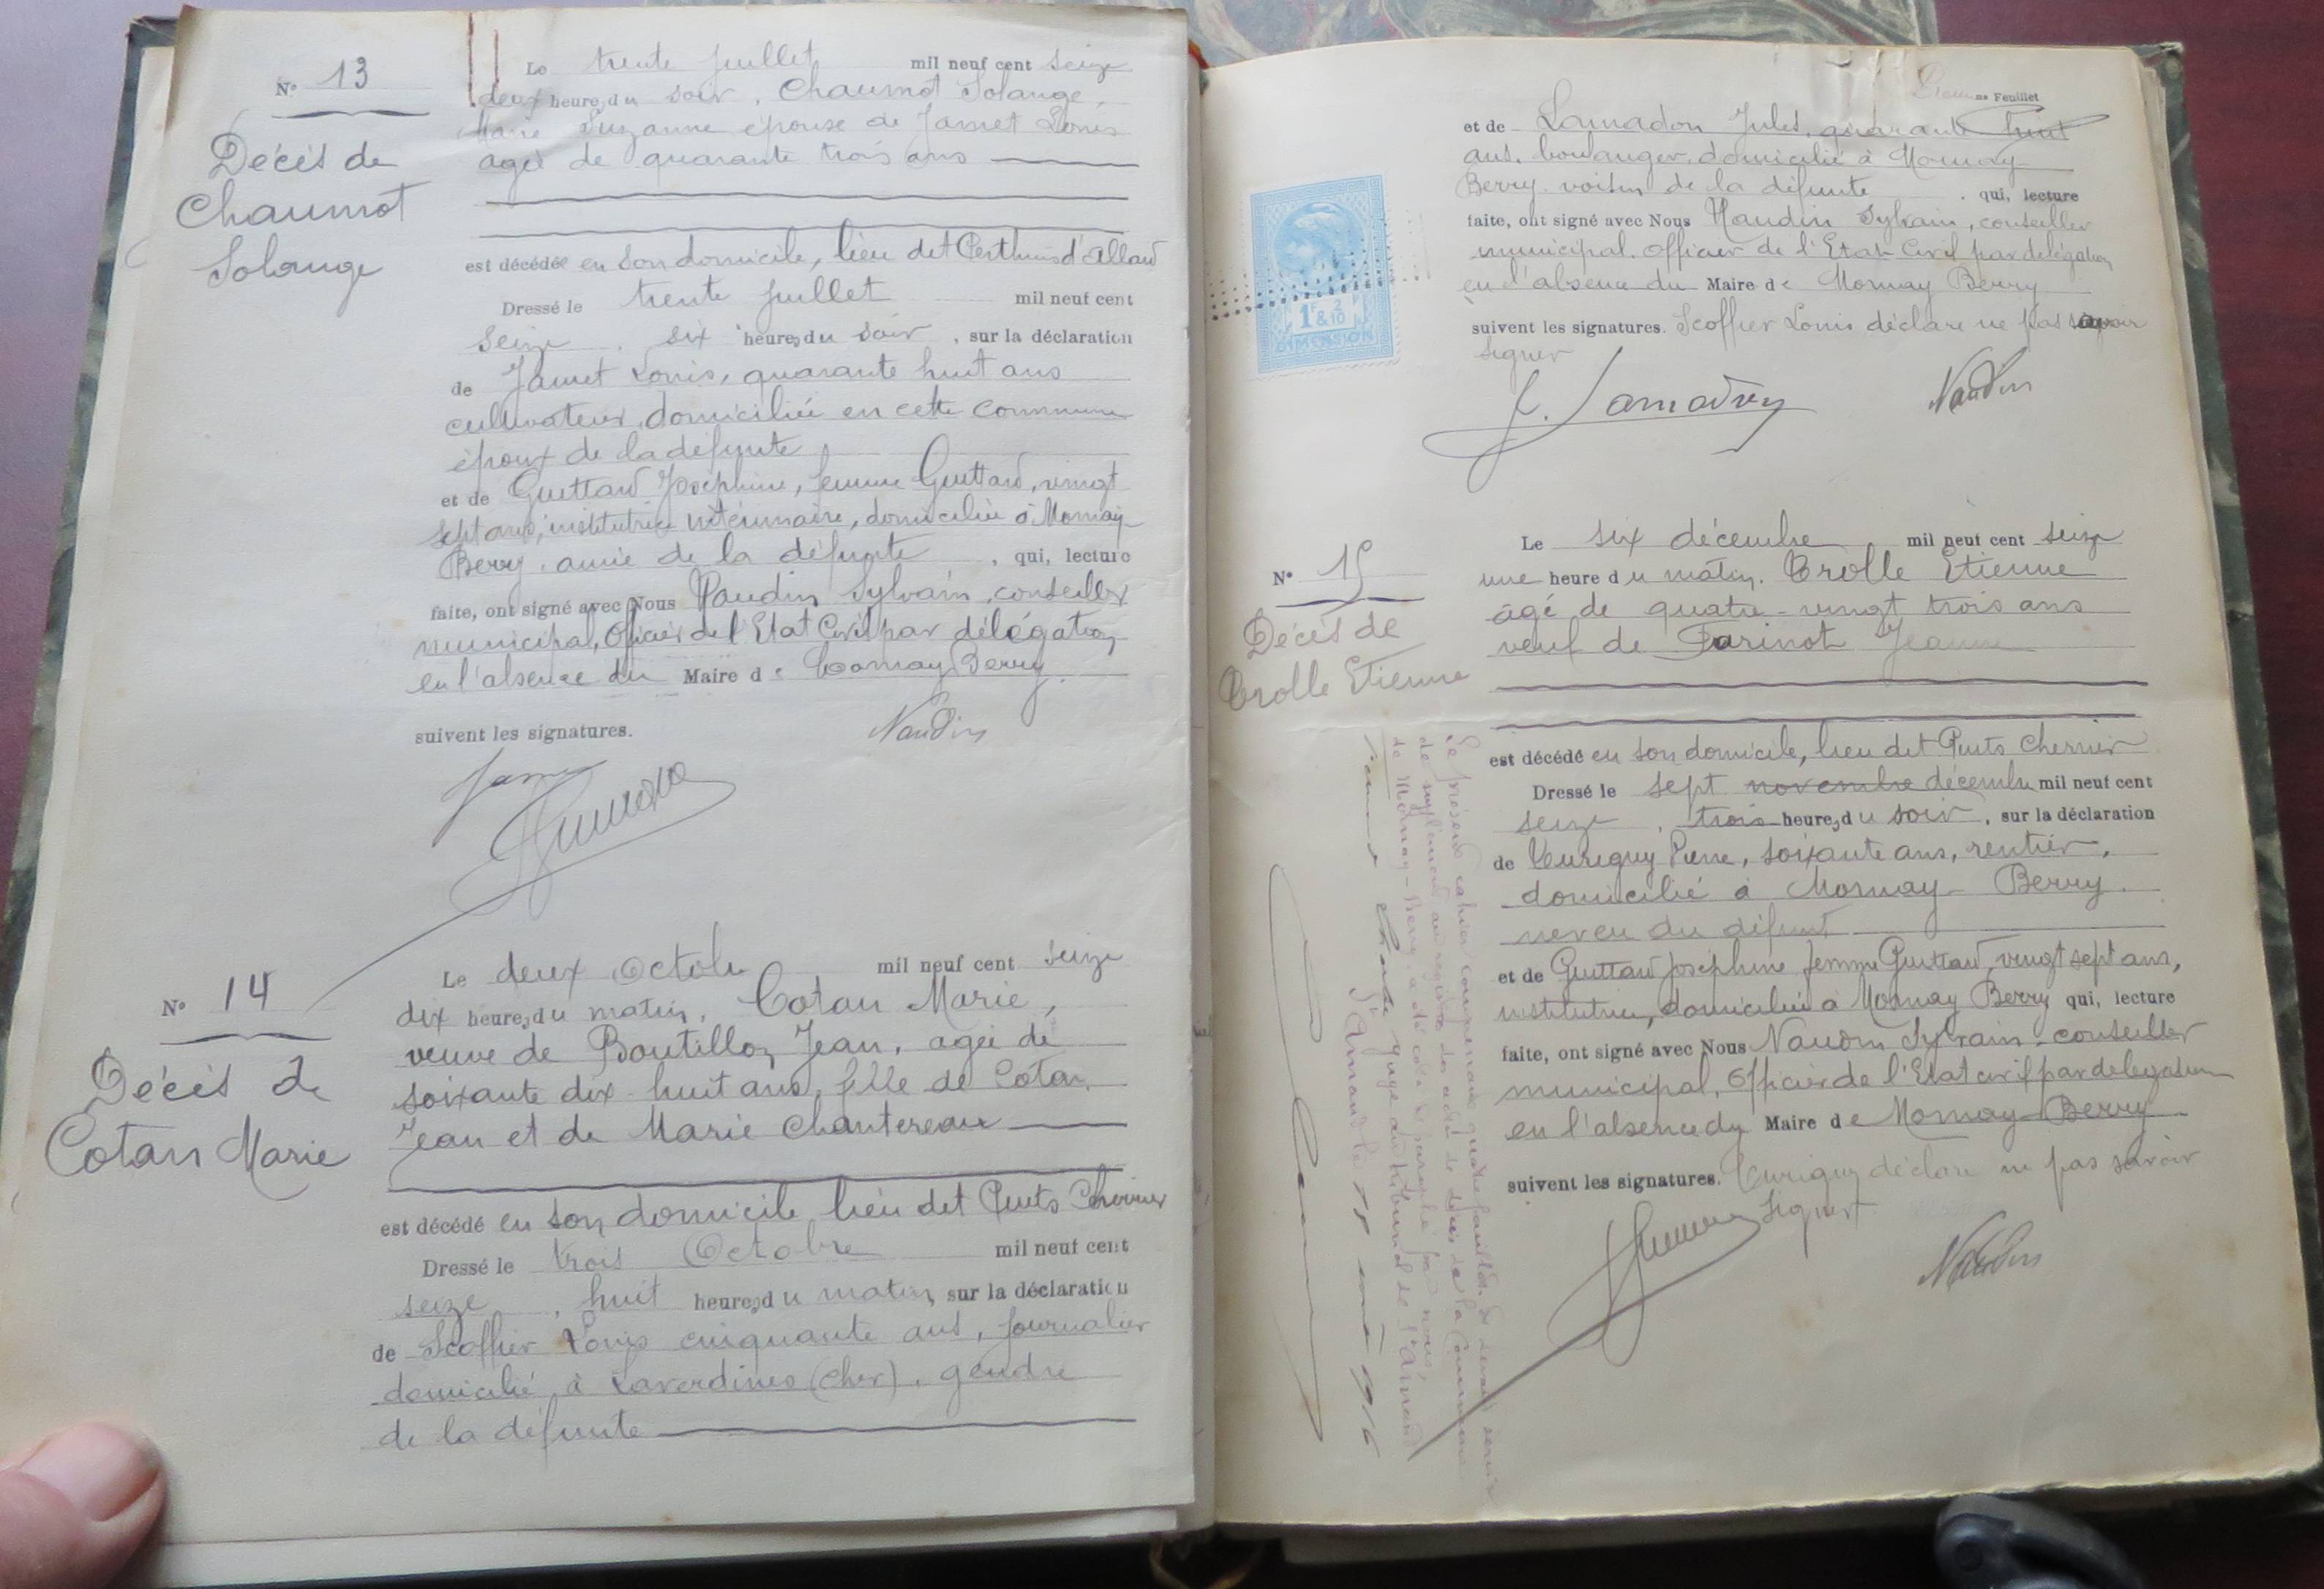 N° 13
Décès de
Chaumot
Solange
Le trente juillet mil neuf cent seize
deux heures du soir, Chaumot Solange,
Marie Suzanne épouse de Jamet Louis
agée de quarante trois ans
est décédée en son domicile, lieu dit Perthuis d'Allau
Dressé le trente juillet mil neuf cent
seize, six heures du soir, sur la déclaration
de Jamet Louis, quarante huit ans
cultivateur, domiciliée en cette commune
époux de la défunte
et de Guittard Joséphine, femme Guittard, vingt
sept ans, institutrice intérimaire, domiciliée à Mornay-
Berry, amie de la défunte, qui, lecture
faite, ont signé avec Nous Naudin Sylvain, conseiller
municipal, Officier de l'Etat Civil par délégation
en l'absence du Maire de Mornay Berry.
suivent les signatures. Naudin
Jamet
N° 14
Décès de
Cotan Marie
Le deux Octobre mil neuf cent seize
dix heures du matin, Cotan Marie,
veuve de Boutillon Jean, agée de
soixante dix-huit ans, fille de Cotan
Jean et de Marie Chantereau
est décédé en son domicile, lieu dit Puits Cherrier
Dressé le trois Octobre mil neuf cent
seize, huit heures du matin, sur la déclaration
de Scoffier Louis cinquante ans, journalier
domicilié à Laverdines (Cher), gendre
de la défunte
Feuillet
et de Lamadon Jules, quarante huit
ans, boulanger, domicilié à Mornay
Berry, voisin de la défunte, qui, lecture
faite, ont signé avec Nous Naudin Sylvain, conseiller
municipal. Officier de l'Etat-Civil par délégation
en l'absence du Maire de Mornay Berry
suivent les signatures. Scoffier Louis déclare ne pas savoir
signer
J. Lamadon Naudin
1F & 2/10
DIMENSION
N° 15
Décès de
Crolle Etienne
Le six décembre mil neuf cent seize
une heure du matin. Crolle Etienne
âgé de quatre-vingt trois ans
veuf de Farinot Jeanne
est décédé en son domicile, lieu dit Puits Cherrier
Dressé le sept novembre décembre mil neuf cent
seize, trois heures du soir, sur la déclaration
de Curigny Pierre, soixante ans, rentier,
domicilié à Mornay-Berry.
neveu du défunt
et de Guittard Joséphine femme Guittard, vingt sept ans,
institutrice, domiciliée à Mornay Berry qui, lecture
faite, ont signé avec Nous Naudin Sylvain-conseiller
municipal, Officier de l'Etat civil par délégation
en l'absence du Maire de Mornay-Berry
suivent les signatures. Curigny déclare ne pas savoir
signer
Naudin
Le présent cahier comprenant quatre feuillets devant servir
de supplément au registre des actes de décès de la Commune
de Mornay-Berry, a été coté et paraphé par nous,
juge au tribunal de St Amand
St Amand le 1916